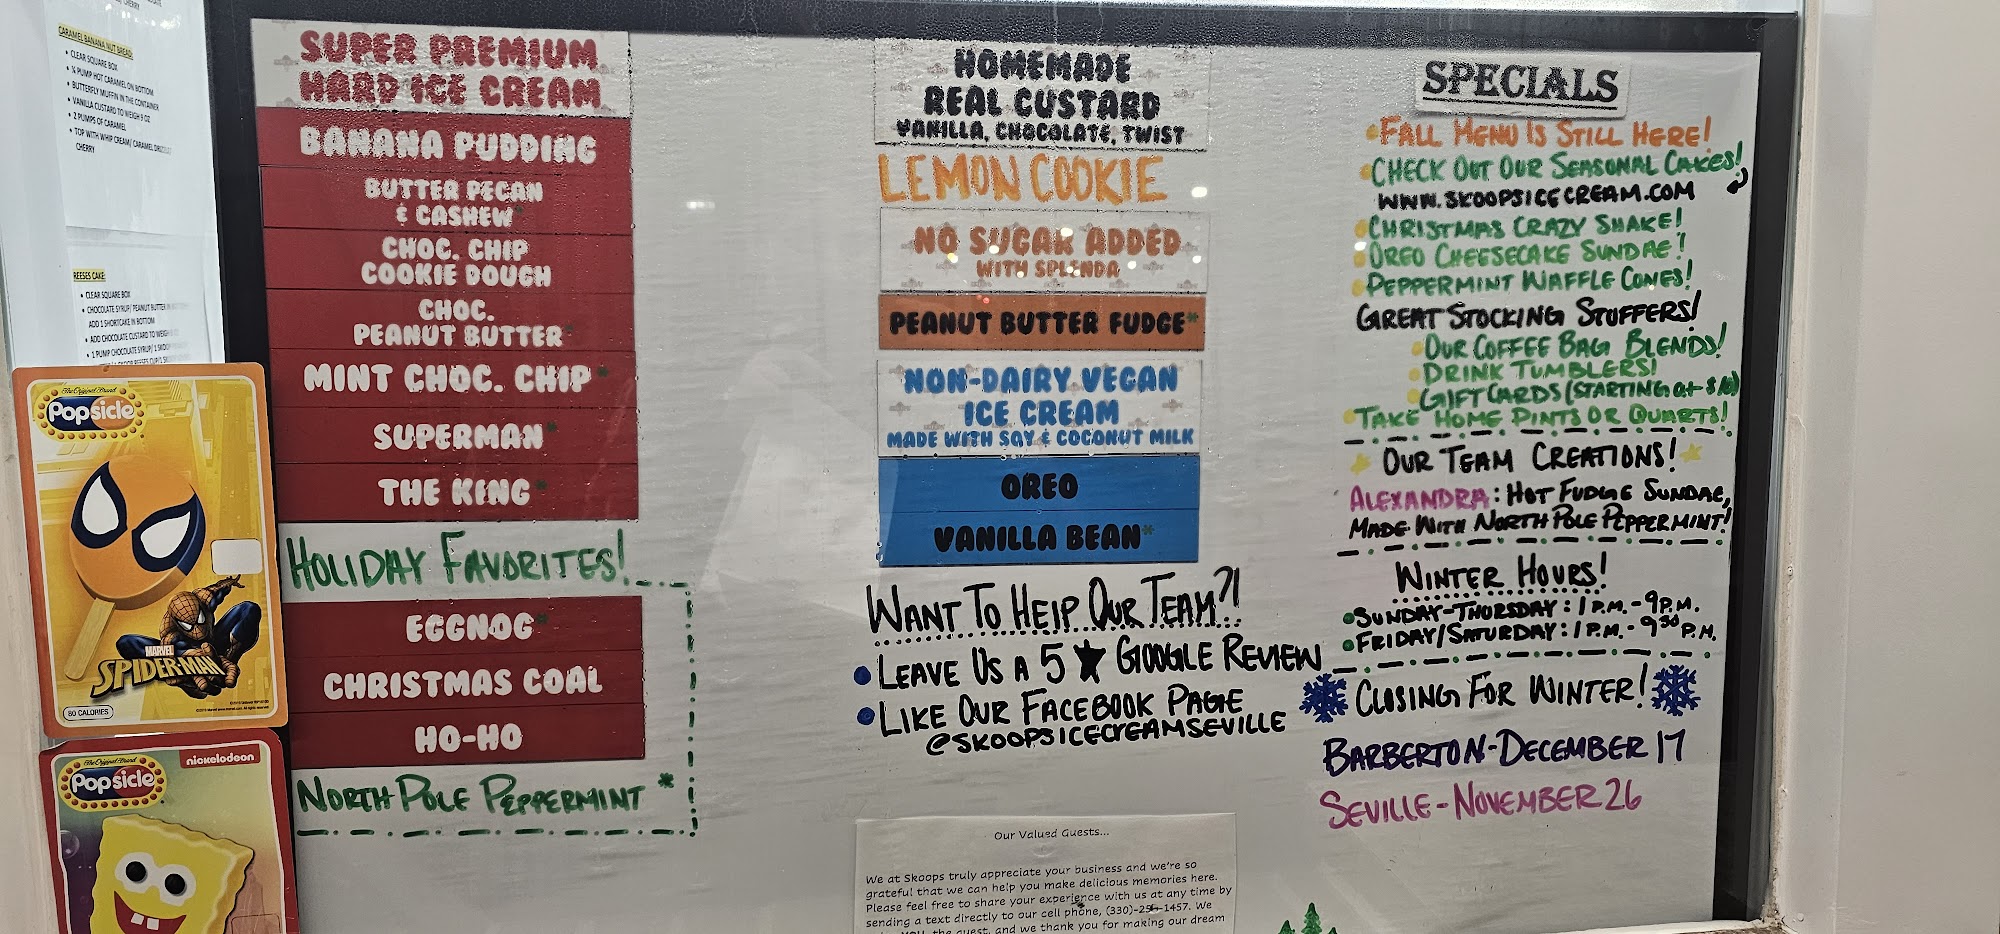 CHERRY
CARAMEL BANANA NUT BREAD:
• CLEAR SQUARE BOX
• ¼ PUMP HOT CARAMEL ON BOTTOM
• BUTTERFLY MUFFIN IN THE CONTAINER
• VANILLA CUSTARD TO WEIGH 9 OZ
• 2 PUMPS OF CARAMEL
• TOP WITH WHIP CREAM/ CARAMEL
CHERRY
REESES CAKE:
• CLEAR SQUARE BOX
• CHOCOLATE SYRUP/ PEANUT BUTTER
ADD 1 SHORTCAKE IN BOTTOM
• ADD CHOCOLATE CUSTARD TO WEIGH
• 1 PUMP CHOCOLATE SYRUP/ 1
The Original Brand
Popsicle
MARVEL
SPIDER-MAN
80 CALORIES
nickelodeon
The Original Brand
Popsicle
SUPER PREMIUM
HARD ICE CREAM
BANANA PUDDING
BUTTER PECAN
& CASHEW*
CHOC. CHIP
COOKIE DOUGH
CHOC.
PEANUT BUTTER*
MINT CHOC. CHIP*
SUPERMAN*
THE KING*
HOLIDAY FAVORITES!
EGGNOG*
CHRISTMAS COAL
HO-HO
NORTH POLE PEPPERMINT *
HOMEMADE
REAL CUSTARD
VANILLA, CHOCOLATE, TWIST
LEMON COOKIE
NO SUGAR ADDED
WITH SPLENDA
PEANUT BUTTER FUDGE*
NON-DAIRY VEGAN
ICE CREAM
MADE WITH SOY & COCONUT MILK
OREO
VANILLA BEAN*
WANT TO HELP OUR TEAM?!
• LEAVE US A 5 ★ GOOGLE REVIEW
• LIKE OUR FACEBOOK PAGE
@SKOOPSICECREAMSEVILLE
Our Valued Guests...
We at Skoops truly appreciate your business and we're so
grateful that we can help you make delicious memories here.
Please feel free to share your experience with us at any time by
sending a text directly to our cell phone, (330)-256-1457. We
YOU, the guest, and we thank you for making our dream
SPECIALS
• FALL MENU IS STILL HERE!
• CHECK OUT OUR SEASONAL CAKES!
WWW.SKOOPSICECREAM.COM
• CHRISTMAS CRAZY SHAKE!
• OREO CHEESECAKE SUNDAE!
• PEPPERMINT WAFFLE CONES!
GREAT STOCKING STUFFERS!
• OUR COFFEE BAG BLENDS!
• DRINK TUMBLERS!
• GIFT CARDS (STARTING at $10)
• TAKE HOME PINTS OR QUARTS!
OUR TEAM CREATIONS!
ALEXANDRA: HOT FUDGE SUNDAE,
MADE WITH NORTH POLE PEPPERMINT!
WINTER HOURS!
• SUNDAY-THURSDAY: 1 P.M. - 9 P.M.
• FRIDAY/SATURDAY: 1 P.M. - 9:30 P.M.
CLOSING FOR WINTER!
BARBERTON-DECEMBER 17
SEVILLE-NOVEMBER 26